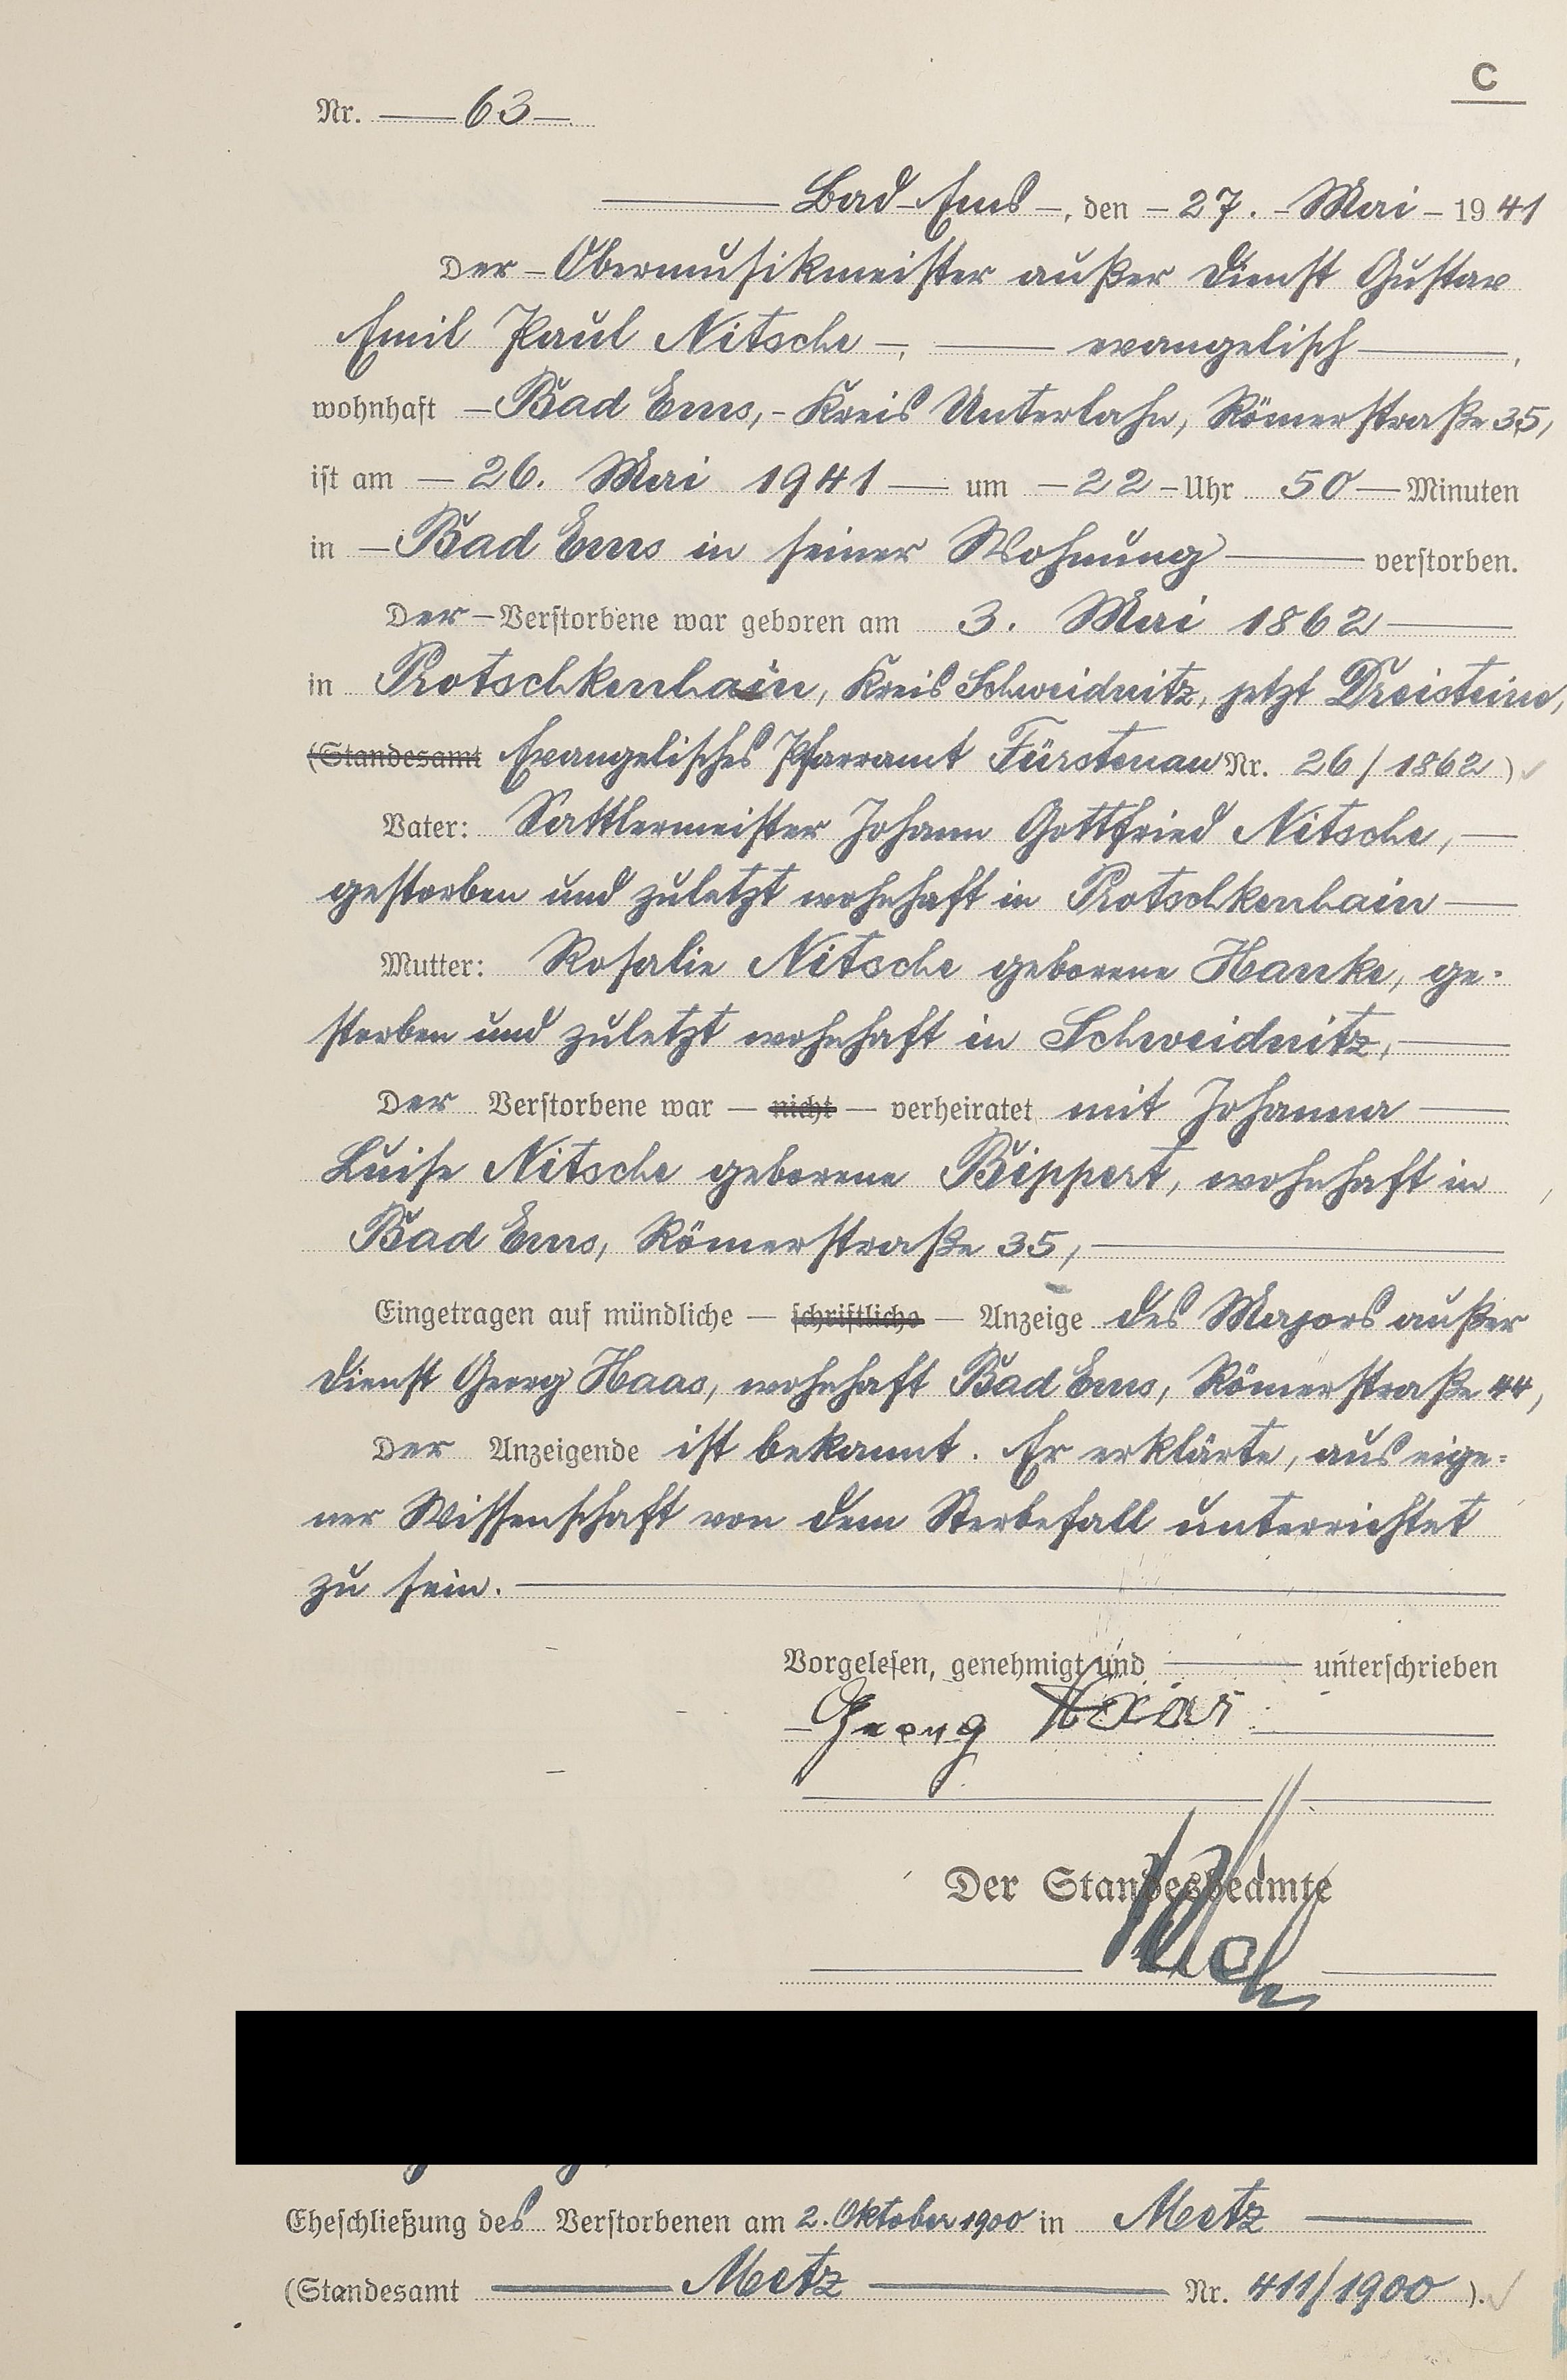 C
Nr. 63
Bad Ems, den 27. Mai 1941
Der Obermusikmeister außer Dienst Gustav
Emil Paul Nitsche, evangelisch,
wohnhaft Bad Ems, Kreis Unterlahn, Römerstraße 35,
ist am 26. Mai 1941 um 22 Uhr 50 Minuten
in Bad Ems in seiner Wohnung verstorben.
Der Verstorbene war geboren am 3. Mai 1862
in Protschkenhain, Kreis Schweidnitz, jetzt Dreisteine,
(Standesamt Evangelisches Pfarramt Fürstenau Nr. 26/1862)
Vater: Sattlermeister Johann Gottfried Nitsche,
gestorben und zuletzt wohnhaft in Protschkenhain
Mutter: Rosalie Nitsche geborene Hanke, ge-
storben und zuletzt wohnhaft in Schweidnitz,
Der Verstorbene war — nicht — verheiratet mit Johanna
Luise Nitsche geborene Bippert, wohnhaft in
Bad Ems, Römerstraße 35,
Eingetragen auf mündliche — schriftliche — Anzeige des Majors außer
Dienst Georg Haas, wohnhaft Bad Ems, Römerstraße 44,
Der Anzeigende ist bekannt. Er erklärte, aus eige-
ner Wissenschaft von dem Sterbefall unterrichtet
zu sein.
Vorgelesen, genehmigt und unterschrieben
Georg Haas
Der Standesbeamte
Eheschließung des Verstorbenen am 2. Oktober 1900 in Metz
(Standesamt Metz Nr. 411/1900).